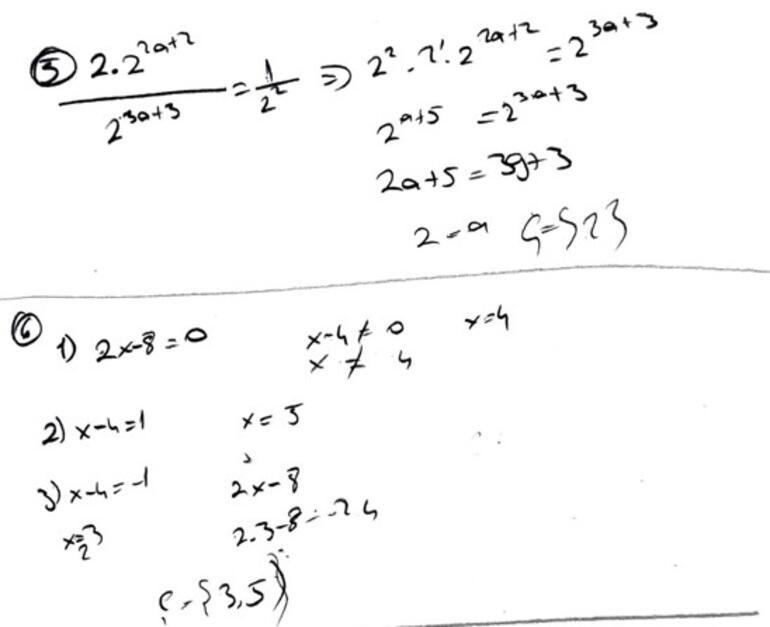 ⑤ 2.2^{2a+2} / 2^{3a+3} = 1/2^2 ⇒ 2^2 . 2^1 . 2^{2a+2} = 2^{3a+3}
2^{a+5} = 2^{3a+3}
2a+5 = 3a+3
2 = a Ç={2}
⑥ 1) 2x-8=0 x-4≠0 x=4
x ≠ 4
2) x-4=1 x=5
3) x-4=-1 2x-8
x=3 2.3-8=-2
Ç={3,5}